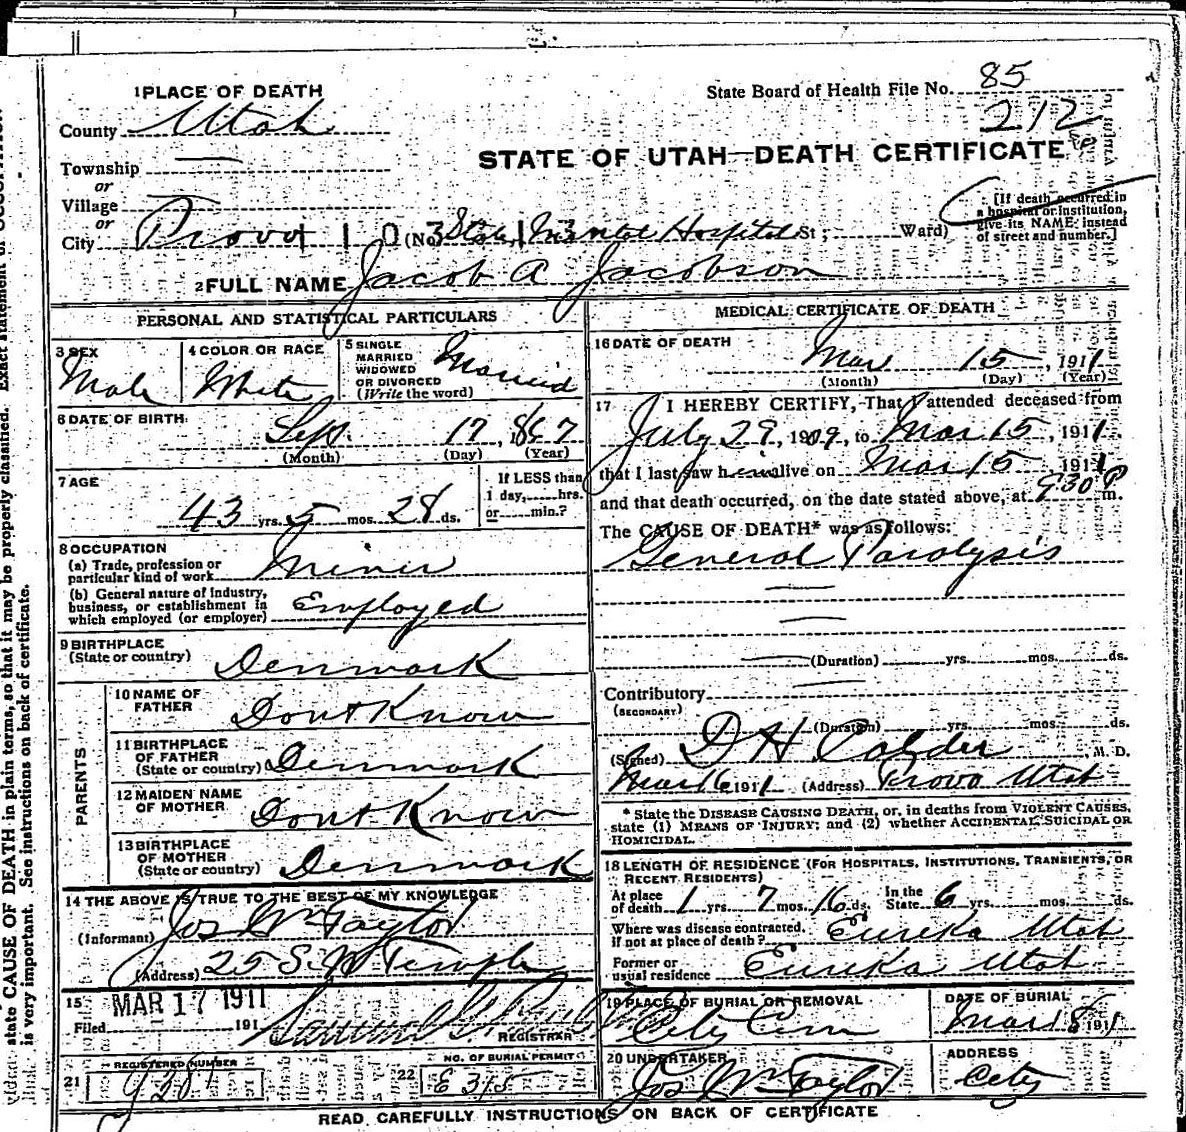 1 PLACE OF DEATH
State Board of Health File No. 85
212
County Utah
STATE OF UTAH—DEATH CERTIFICATE
Township
or
Village
or
City Provo (No. State Mental Hospital St; Ward)
[If death occurred in a hospital or institution, give its NAME instead of street and number.]
2 FULL NAME Jacob A Jacobson
PERSONAL AND STATISTICAL PARTICULARS
3 SEX
Male
4 COLOR OR RACE
White
5 SINGLE
MARRIED
WIDOWED
OR DIVORCED
(Write the word)
Married
6 DATE OF BIRTH
Sept 17, 1867
(Month) (Day) (Year)
7 AGE
43 yrs. 5 mos. 28 ds.
If LESS than
1 day, hrs.
or min.?
8 OCCUPATION
(a) Trade, profession or
particular kind of work Miner
(b) General nature of industry,
business, or establishment in
which employed (or employer) Employed
9 BIRTHPLACE
(State or country) Denmark
PARENTS
10 NAME OF
FATHER Dont Know
11 BIRTHPLACE
OF FATHER
(State or country) Denmark
12 MAIDEN NAME
OF MOTHER Dont Know
13 BIRTHPLACE
OF MOTHER
(State or country) Denmark
14 THE ABOVE IS TRUE TO THE BEST OF MY KNOWLEDGE
(Informant) Jos Wm Taylor
(Address) 25 S. W Temple
15 MAR 17 1911
Filed 191
REGISTRAR
REGISTERED NUMBER
21
NO. OF BURIAL PERMIT
22 E 315
MEDICAL CERTIFICATE OF DEATH
16 DATE OF DEATH
Mar 15, 1911
(Month) (Day) (Year)
17 I HEREBY CERTIFY, That I attended deceased from
July 29, 1909, to Mar 15, 1911.
that I last saw him alive on Mar 15, 1911
and that death occurred, on the date stated above, at 9 30 P m.
The CAUSE OF DEATH* was as follows:
General Paralysis
(Duration) yrs. mos. ds.
Contributory
(SECONDARY)
(Duration) yrs. mos. ds.
(Signed) D H Calder M. D.
Mar 16 1911 (Address) Provo Utah
* State the DISEASE CAUSING DEATH, or, in deaths from VIOLENT CAUSES,
state (1) MEANS OF INJURY; and (2) whether ACCIDENTAL, SUICIDAL OR
HOMICIDAL.
18 LENGTH OF RESIDENCE (FOR HOSPITALS, INSTITUTIONS, TRANSIENTS, OR
RECENT RESIDENTS)
At place
of death 1 yrs. 7 mos. 16 ds. In the
State 6 yrs. mos. ds.
Where was disease contracted,
if not at place of death? Eureka Utah
Former or
usual residence Eureka Utah
19 PLACE OF BURIAL OR REMOVAL
City Cem
DATE OF BURIAL
Mar 18 1911
20 UNDERTAKER
Jos Wm Taylor
ADDRESS
City
READ CAREFULLY INSTRUCTIONS ON BACK OF CERTIFICATE
state CAUSE OF DEATH in plain terms, so that it may be properly classified. Exact statement of OCCUPATION
is very important. See instructions on back of certificate.